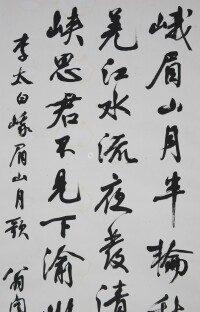 峨眉山月半輪秋
羌江水流夜發清
峽思君不見下渝州
李太白峨眉山月歌 翁闓